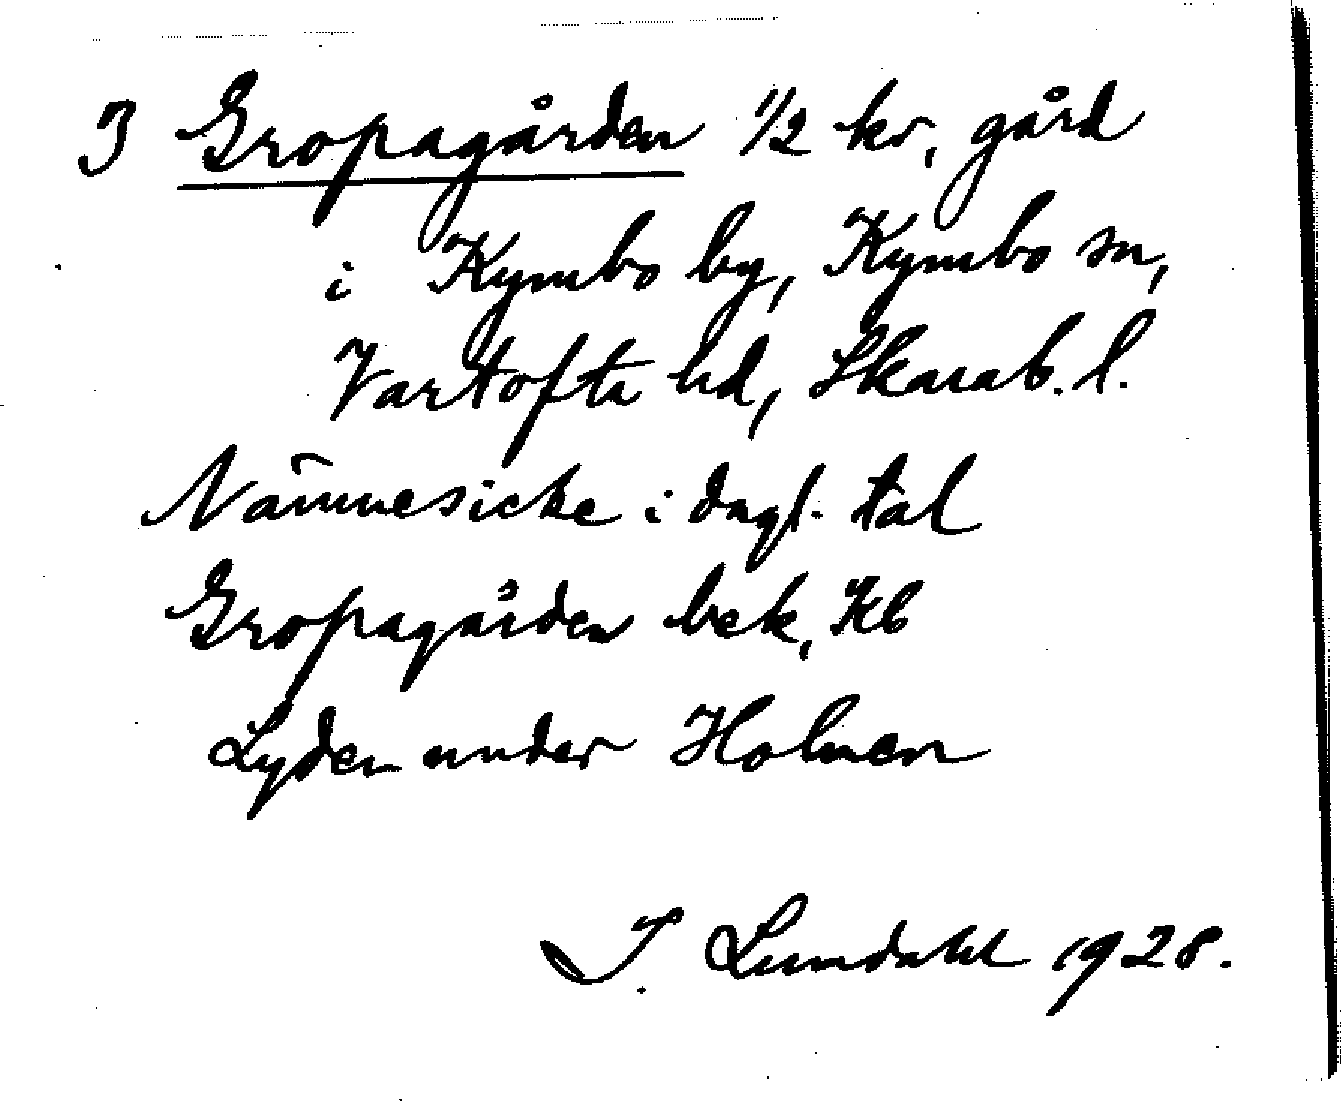 3 Gropagården 1/2 kr, gård
i Kymbo by, Kymbo sn,
Vartofta hd, Skarab. l.
Nämnes icke i dagl. tal
Gropagården bek, Kb
Lyder under Holmen
I. Lundahl 1928.